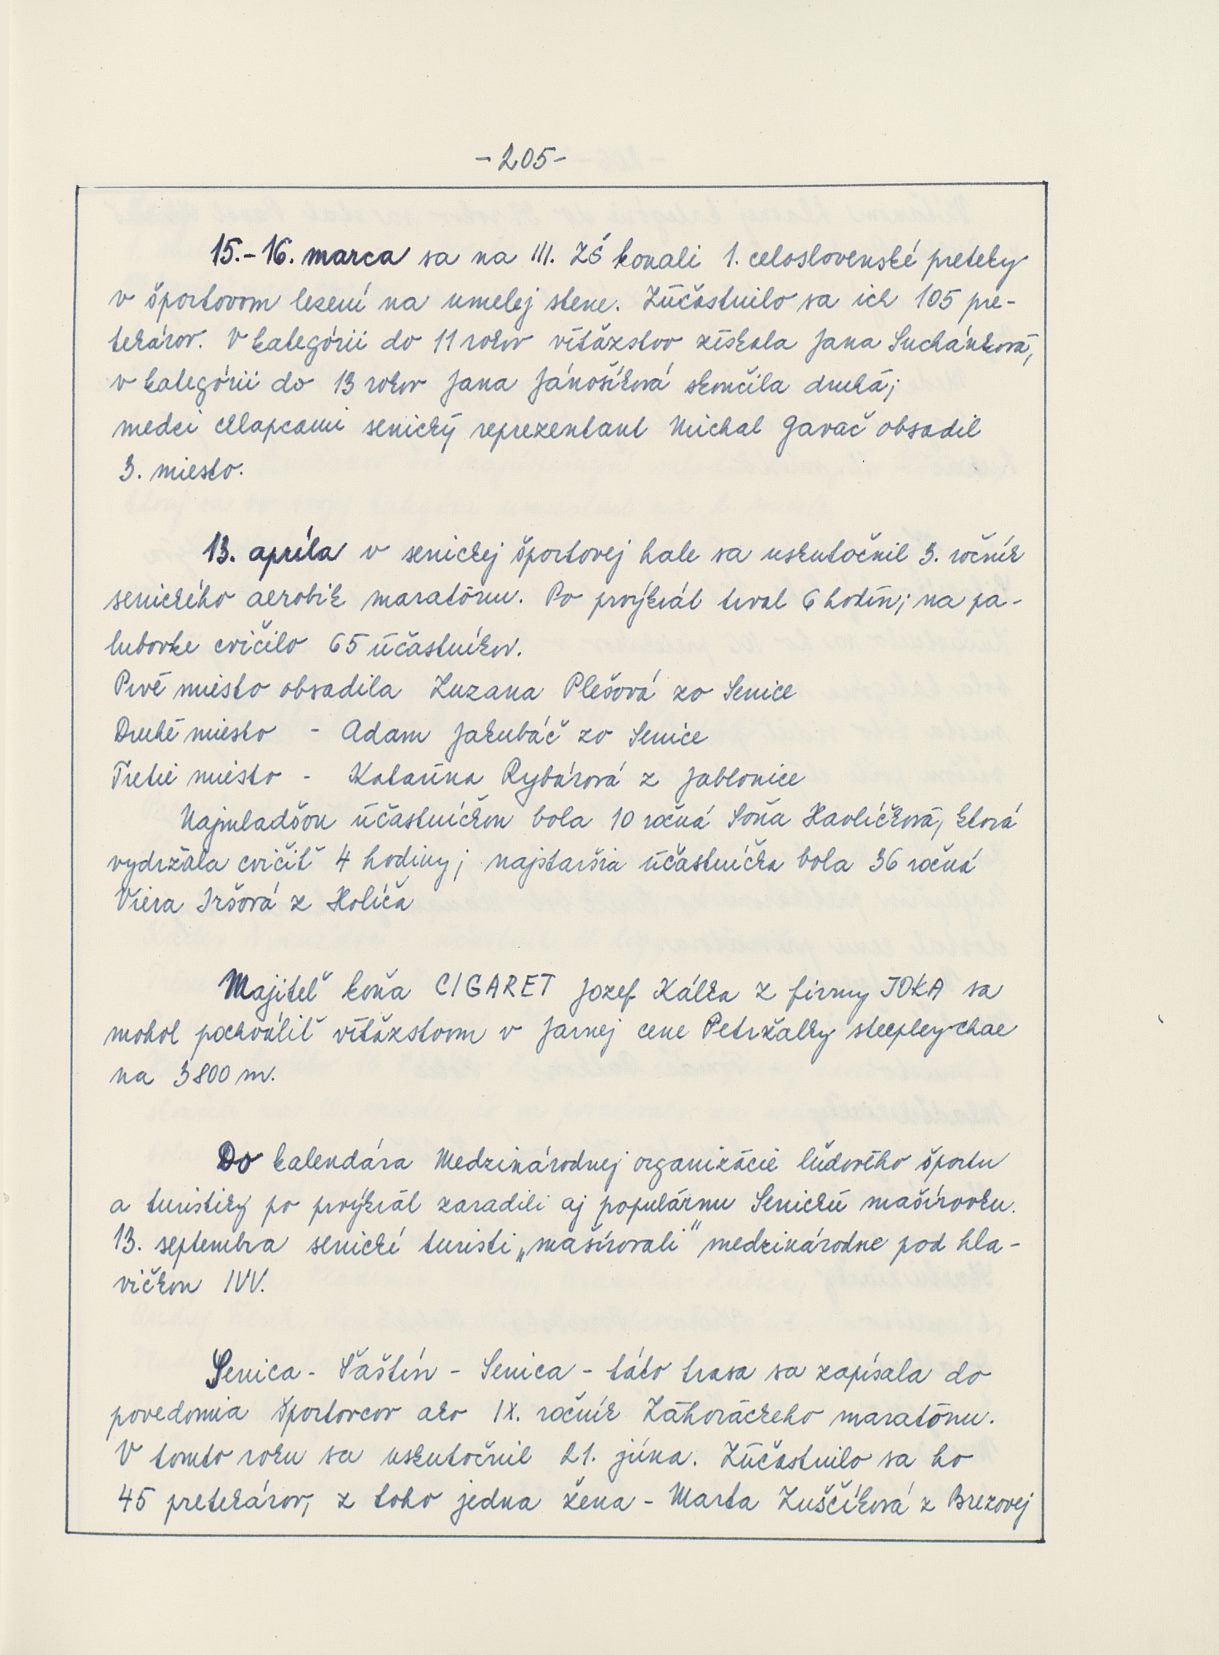 -205-
15.-16. marca sa na III. ZŠ konali 1. celoslovenské preteky
v športovom lezení na umelej stene. Zúčastnilo sa ich 105 pre-
tekárov. V kategórii do 11 rokov víťazstvo získala Jana Suchánková,
v kategórii do 13 rokov Jana Jánošíková skončila druhá;
medzi chlapcami senický reprezentant Michal Gavač obsadil
3. miesto.
13. apríla v senickej športovej hale sa uskutočnil 3. ročník
senického aerobik maratónu. Po prvýkrát trval 6 hodín; na pa-
lubovke cvičilo 65 účastníkov.
Prvé miesto obsadila Zuzana Plešová zo Senice
Druhé miesto - Adam Jakubáč zo Senice
Tretie miesto - Katarína Rybárová z Jablonice
Najmladšou účastníčkou bola 10 ročná Soňa Havlíčková, ktorá
vydržala cvičiť 4 hodiny; najstaršia účastníčka bola 36 ročná
Viera Iršová z Holíča
Majiteľ koňa CIGARET Jozef Kálka z firmy JOKA sa
mohol pochváliť víťazstvom v Jarnej cene Petržalky steepley-chae
na 3800 m.
Do kalendára Medzinárodnej organizácie ľudového športu
a turistiky po prvýkrát zaradili aj populárnu Senickú mašírovku.
13. septembra senickí turisti „mašírovali" medzinárodne pod hla-
vičkou IVV.
Senica - Šaštín - Senica - táto trasa sa zapísala do
povedomia športovcov ako IX. ročník Záhoráckeho maratónu.
V tomto roku sa uskutočnil 21. júna. Zúčastnilo sa ho
45 pretekárov, z toho jedna žena - Marta Zuščíková z Brezovej